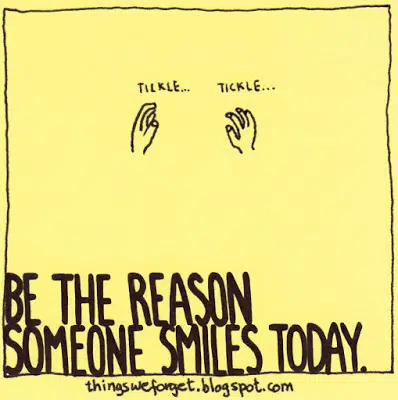 TICKLE... TICKLE...
BE THE REASON
SOMEONE SMILES TODAY.
thingsweforget.blogspot.com